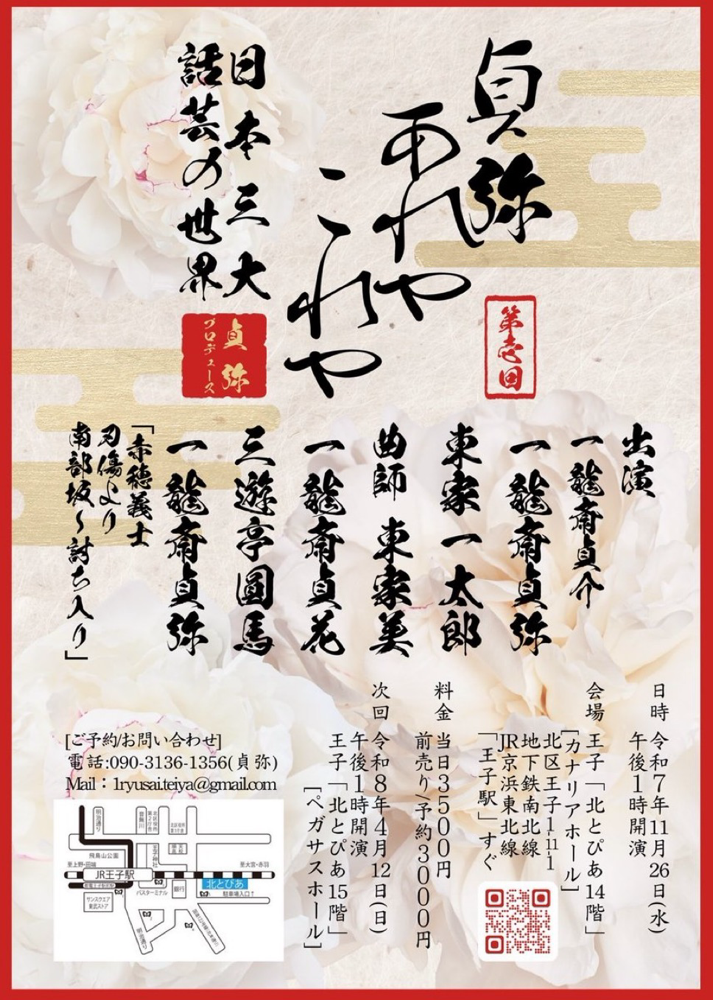 貞弥
あれや
これや
第壱回
日本三大
話芸の世界
貞弥
プロデュース
出演
一龍斎貞介
一龍斎貞弥
東家一太郎
曲師 東家美
一龍斎貞花
三遊亭圓馬
一龍斎貞弥
「赤穂義士
刃傷より
南部坂〜討ち入り」
日時 令和7年11月26日(水)
午後1時開演
会場 王子「北とぴあ14階」
[カナリアホール]
北区王子1-11-1
地下鉄南北線
JR京浜東北線
「王子駅」すぐ
料金 当日3500円
前売り/予約3000円
次回 令和8年4月12日(日)
午後1時開演
王子「北とぴあ15階」
[ペガサスホール]
[ご予約/お問い合わせ]
電話:090-3136-1356(貞弥)
Mail：1ryusai.teiya@gmail.com
明治通り
飛鳥山公園
至上野・田端
至大宮・赤羽
JR王子駅
北とぴあ
バスターミナル
銀行
駐車場入口
サンスクエア
東武ストア
明治通り